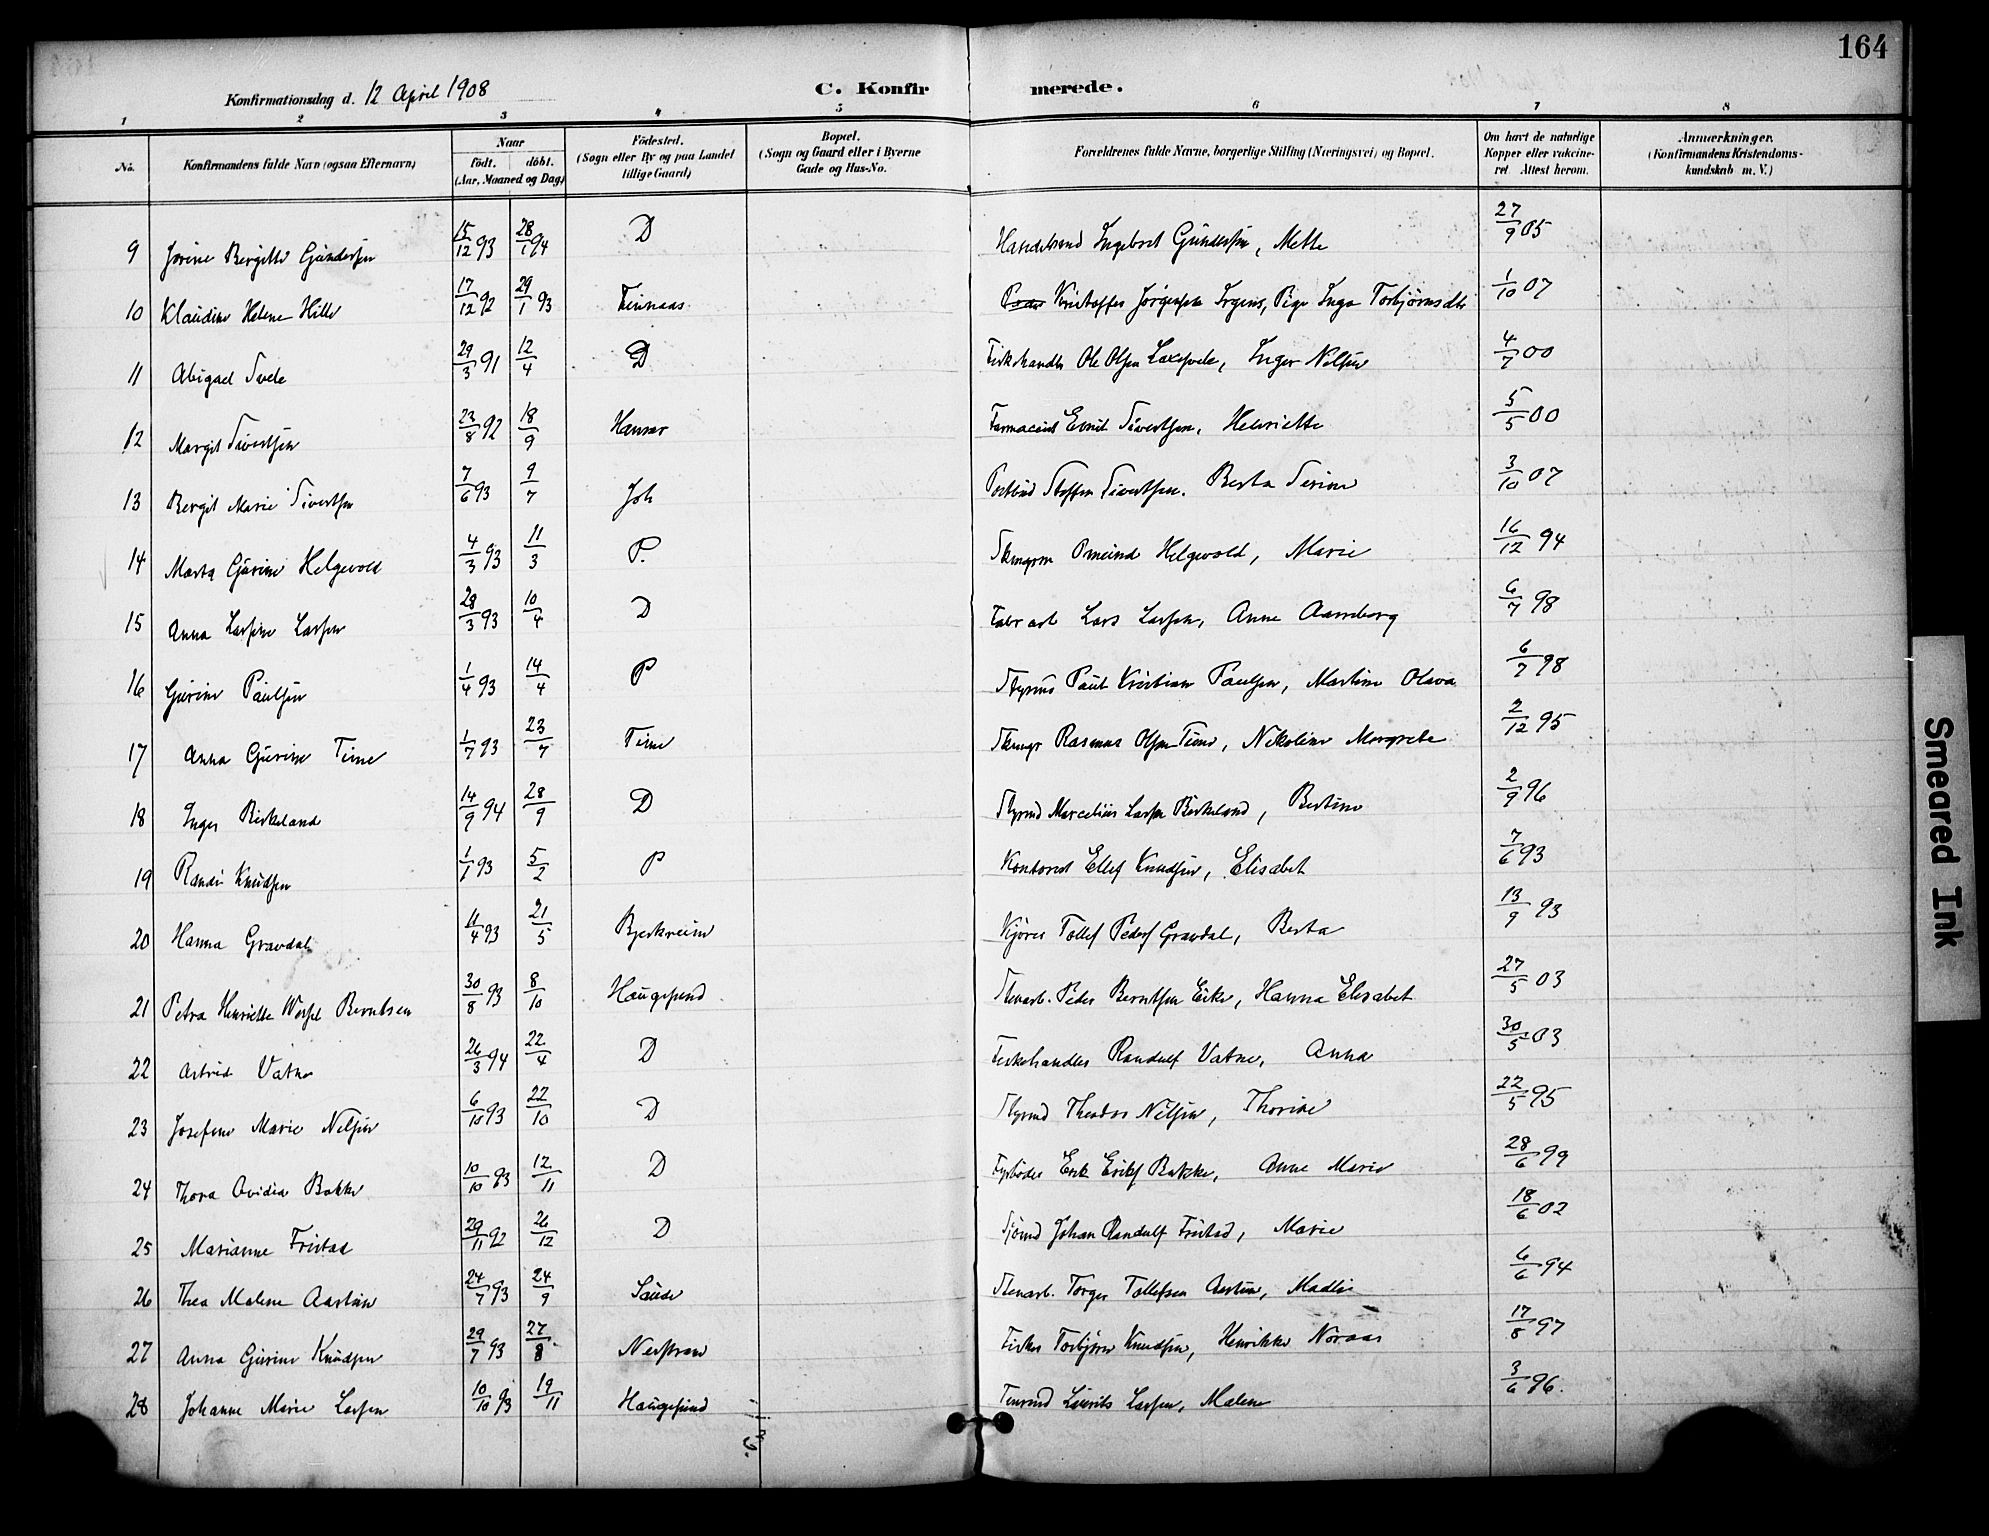 164
Konfirmationsdag d. 12 April 1908
C. Konfirmerede.
1 2 3 4 5 6 7 8
No.
Konfirmandens fulde Navn (ogsaa Efternavn)
Naar
födt. döbt.
(Aar, Maaned og Dag)
Födested.
(Sogn eller By og paa Landet
tillige Gaard)
Bopæl.
(Sogn og Gaard eller i Byerne
Gade og Hus-No.
Forældrenes fulde Navne, borgerlige Stilling (Næringsvei) og Bopæl.
Om havt de naturlige
Kopper eller vakcine-
ret. Attest herom.
Anmærkninger.
(Konfirmandens Kristendoms-
kundskab m. V.)
9 Jorine Bergitte Gundersen 15/12 93 28/1 94 D Ingebret Gundersen, Mette 27/9 05
10 Klaudine Helene Hille 17/12 92 29/1 93 Finnaas Kristoffer Jörgensen Irgens, Pige Inga Torbjörnsdtr 1/10 07
11 Abigael Svele 29/3 91 12/4 D Fiskehandler Ole Olsen, Inger Nilsen 4/7 00
12 Margit Sivertsen 23/8 92 18/9 Farmaceut Emil Sivertsen, Henriette 5/5 00
13 Bergit Marie Sivertsen 7/6 93 9/7 Joh Postbud Steffen Sivertsen. Berta Serine 3/10 07
14 Marta Gurine Helgevold 4/3 93 11/3 P. Omund Helgevold, Marie 16/12 94
15 Anna Larsine Larsen 28/3 93 10/4 D Fabr arb Lars Larsen, Anne Aarreberg 6/7 98
16 Gurine Paulsen 1/4 93 14/4 P Paul Kristian Paulsen, Martine Olava 6/7 98
17 Anna Gurine Time 1/7 93 23/7 Time Rasmus Olsen Time, Nikoline Margrete 2/12 95
18 Inger Birkeland 14/9 94 28/9 D Styrmd Marcelius Larsen Birkeland, Bertine 2/9 96
19 Randi Knudsen 1/1 93 5/2 P Kontorist Ellef Knudsen, Elisabet 7/6 93
20 Hanna Gravdal 11/4 93 21/5 Bjerkreim Kjörer Tollef Peders Gravdal, Berta 13/9 93
21 Petra Henriette Berntsen 30/8 93 8/10 Haugesund Stenarb. Peder Berntsen Eike, Hanna Elisabet 27/5 03
22 Astrid Vatne 26/3 94 22/4 D Fiskehandler Randulf Vatne, Anna 30/5 03
23 Josefine Marie Nilsen 6/10 93 22/10 D Styrmd Theodor Nilsen, Thorine 22/5 95
24 Thora Ovidia Bakke 10/10 93 12/11 D Fyrböder Erik Eriks Bakke, Anne Marie 28/6 99
25 Marianne Fristad 29/11 92 26/12 D Sjömd Johan Randulf Fristad, Marie 18/6 02
26 Thea Malene Aarstein 24/7 93 24/9 Saude Stenarb. Torger Tollefsen, Madli 6/6 94
27 Anna Gurine Knudsen 29/7 93 27/8 Nerstrand Fisker Torbjörn Knudsen, Henrikke Noraas 17/8 97
28 Johanne Marie Larsen 10/10 93 19/11 Haugesund Laurits Larsen, Malene 3/6 96.
Smeared Ink